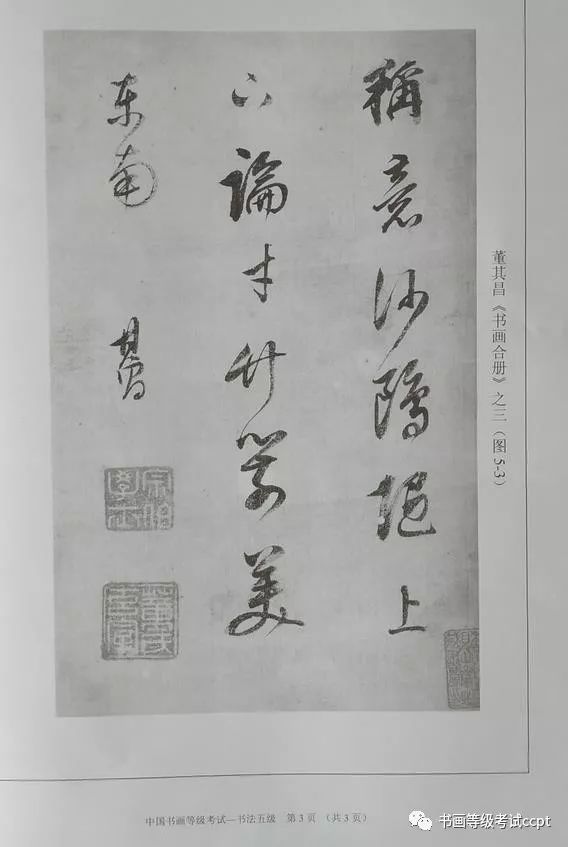 稱意沙上
下論才竹箭美
東南
其昌
宗伯學士
董氏玄宰
董其昌《书画合册》之三(图5-3)
中国书画等级考试—书法五级 第3页 (共3页)
书画等级考试ccpt